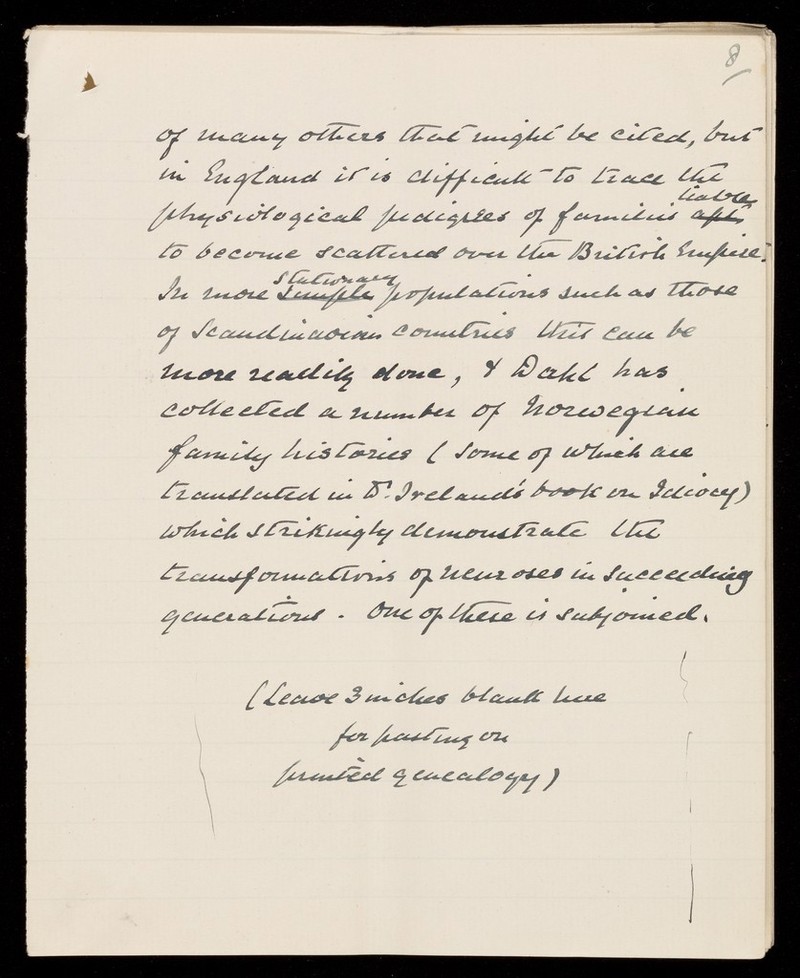 8
of many others that might be cited, but
in England it is difficult to trace the
liable
physiological pedigrees of families apt
to become scattered over the British Empire.
stationary
In more simple populations such as those
of Scandinavian countries this can be
more readily done, & Dahl has
collected a number of Norwegian
family histories (some of which are
translated in Dr. Ireland's book on Idiocy)
which strikingly demonstrate the
transformations of neuroses in succeeding
generations. One of these is subjoined.
(Leave 3 inches blank here
for pasting on
printed genealogy)